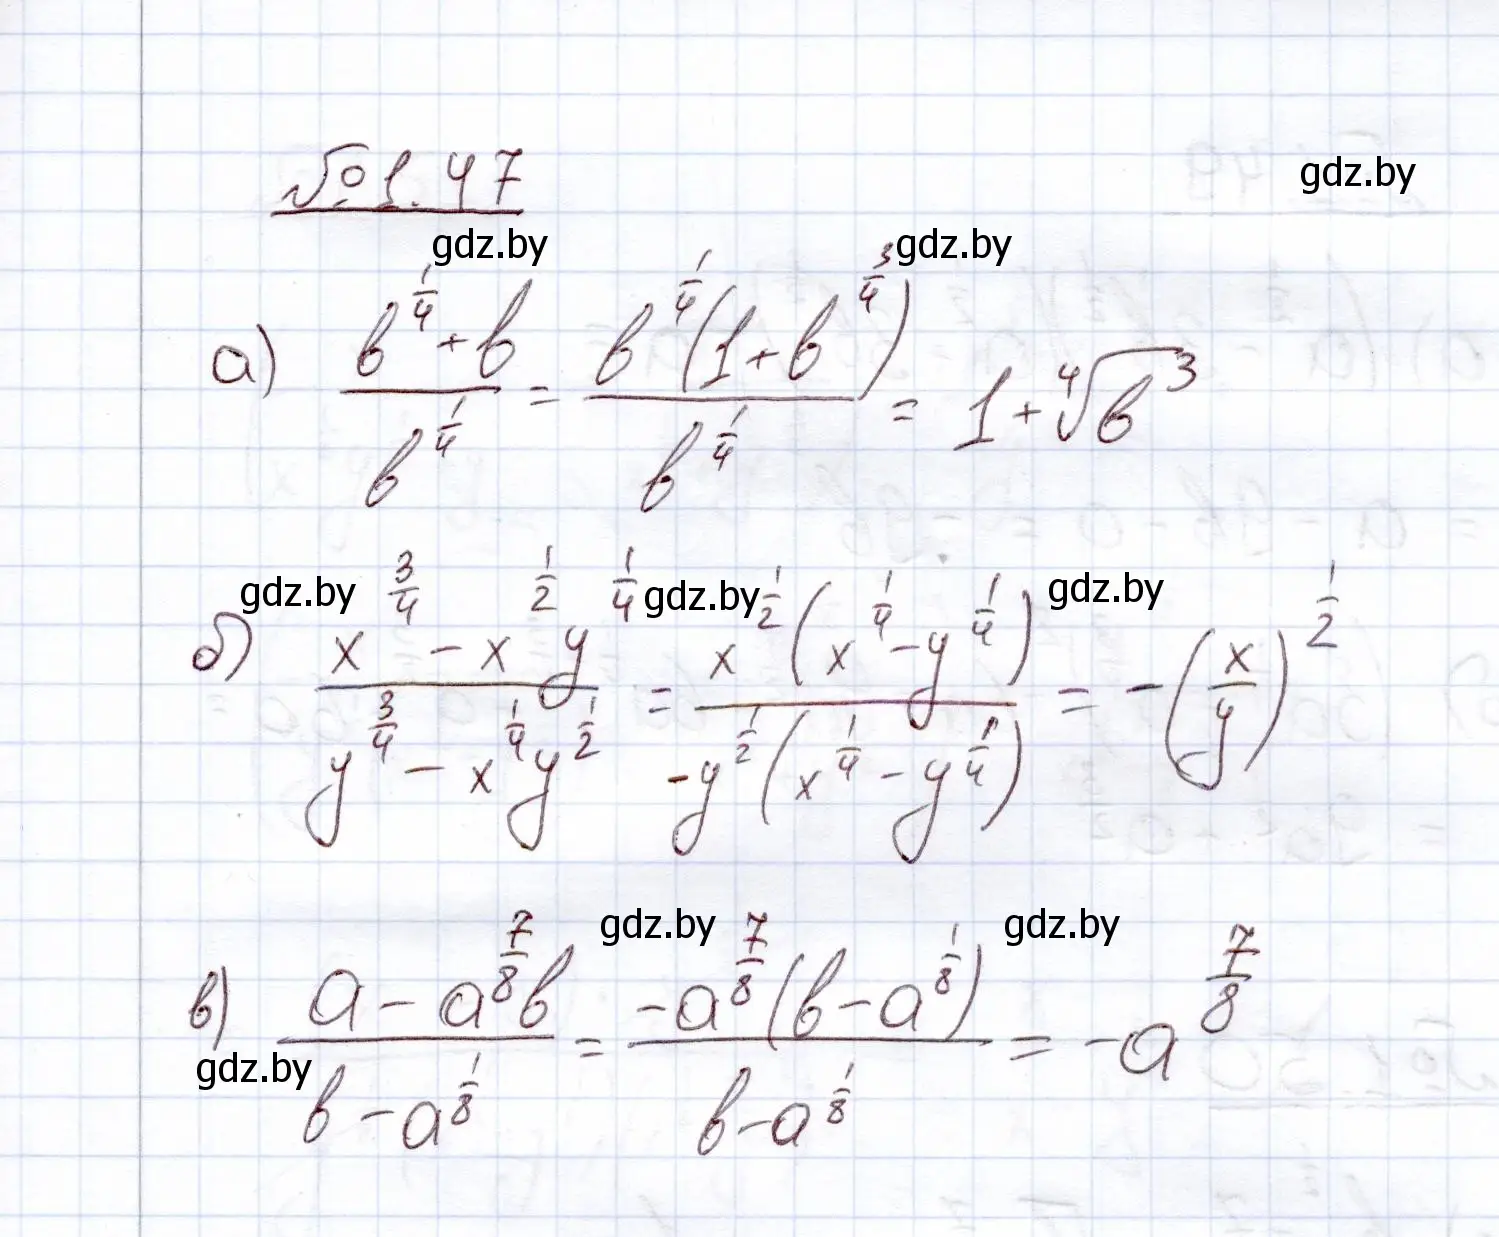 №1.47
gdz.by
gdz.by gdz.by
а) (b^(1/4) + b) / b^(1/4) = b^(1/4)(1 + b^(3/4)) / b^(1/4) = 1 + ⁴√b³
gdz.by gdz.by gdz.by
б) (x^(3/4) − x^(1/2) y^(1/4)) / (y^(3/4) − x^(1/4) y^(1/2)) = x^(1/2)(x^(1/4) − y^(1/4)) / (−y^(1/2)(x^(1/4) − y^(1/4))) = −(x/y)^(1/2)
gdz.by gdz.by
в) (a − a^(7/8) b) / (b − a^(1/8)) = −a^(7/8)(b − a^(1/8)) / (b − a^(1/8)) = −a^(7/8)
gdz.by